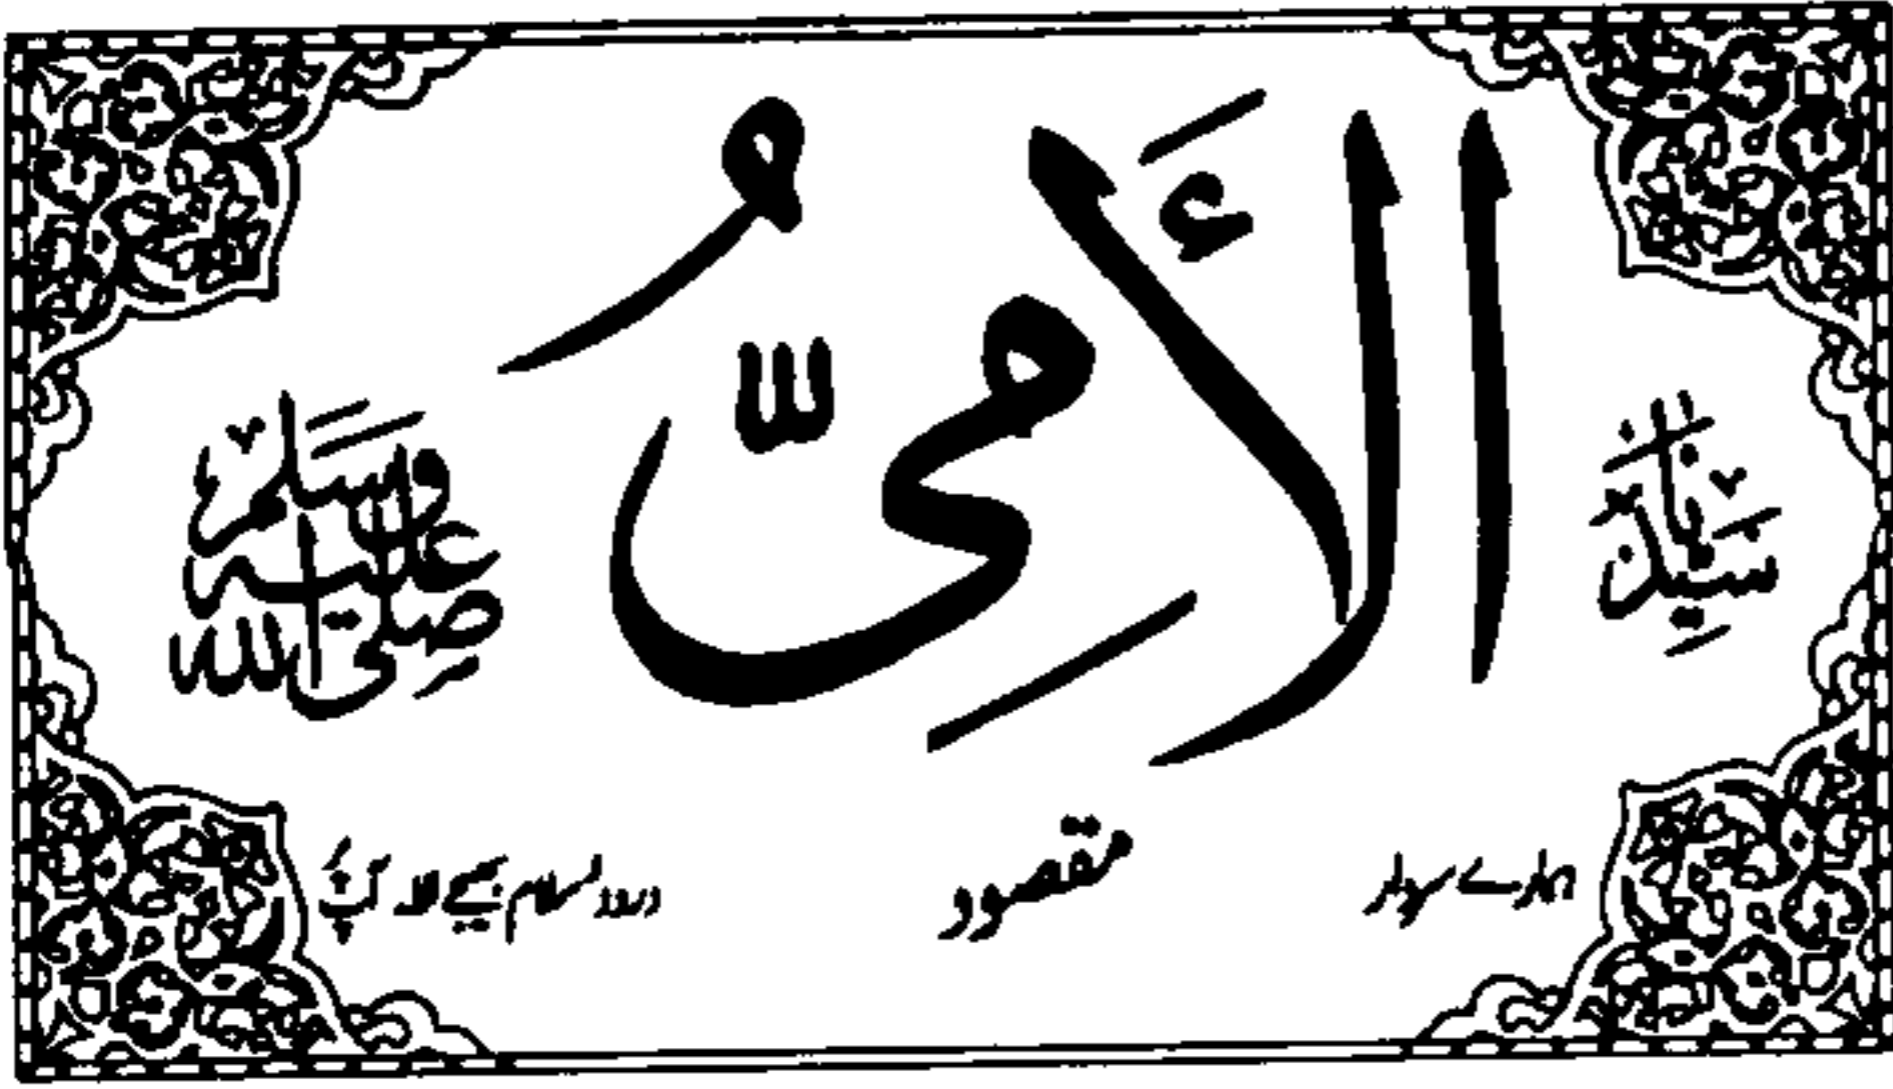 سَيِّدُنَا
الْأَمِّىُّ
صلى الله عليه وسلم
ہمارے سردار مقصود درود و سلام بھیجے اللہ آپ پر